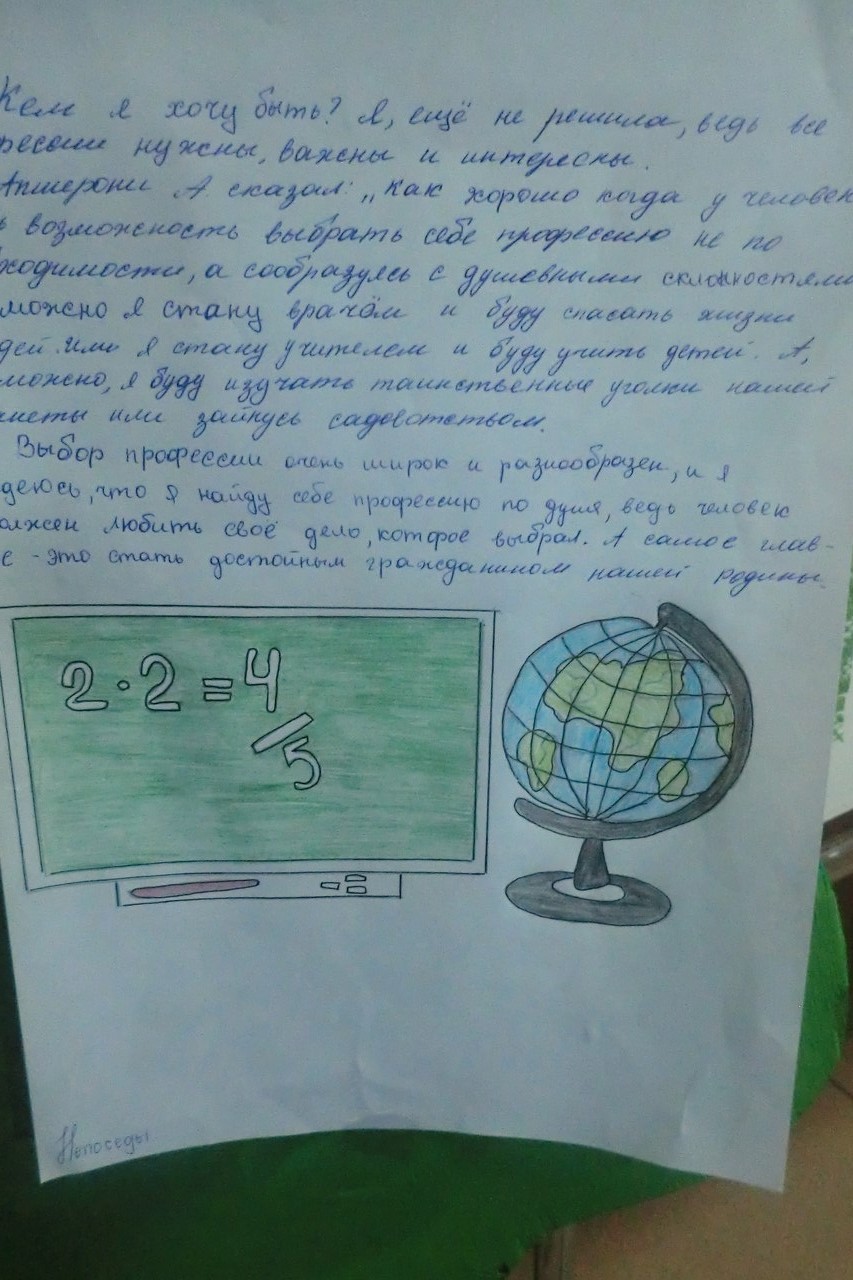 Кем я хочу быть? Я, ещё не решила, ведь все
фессии нужны, важны и интересны.
Апшерони А. сказал: „Как хорошо когда у человек
ь возможность выбрать себе профессию не по
ходимости, а сообразуясь с душевными склонностями
можно я стану врачём и буду спасать жизни
дей. Или я стану учителем и буду учить детей. А,
можно, я буду изучать таинственные уголки нашей
неты или займусь садовотством.
Выбор профессии очень широк и разнообразен, и я
деюсь, что я найду себе профессию по душе, ведь человек
олжен любить своё дело, которое выбрал. А самое глав-
е - это стать достойным гражданином нашей родины.
2·2=4
5
Непоседы